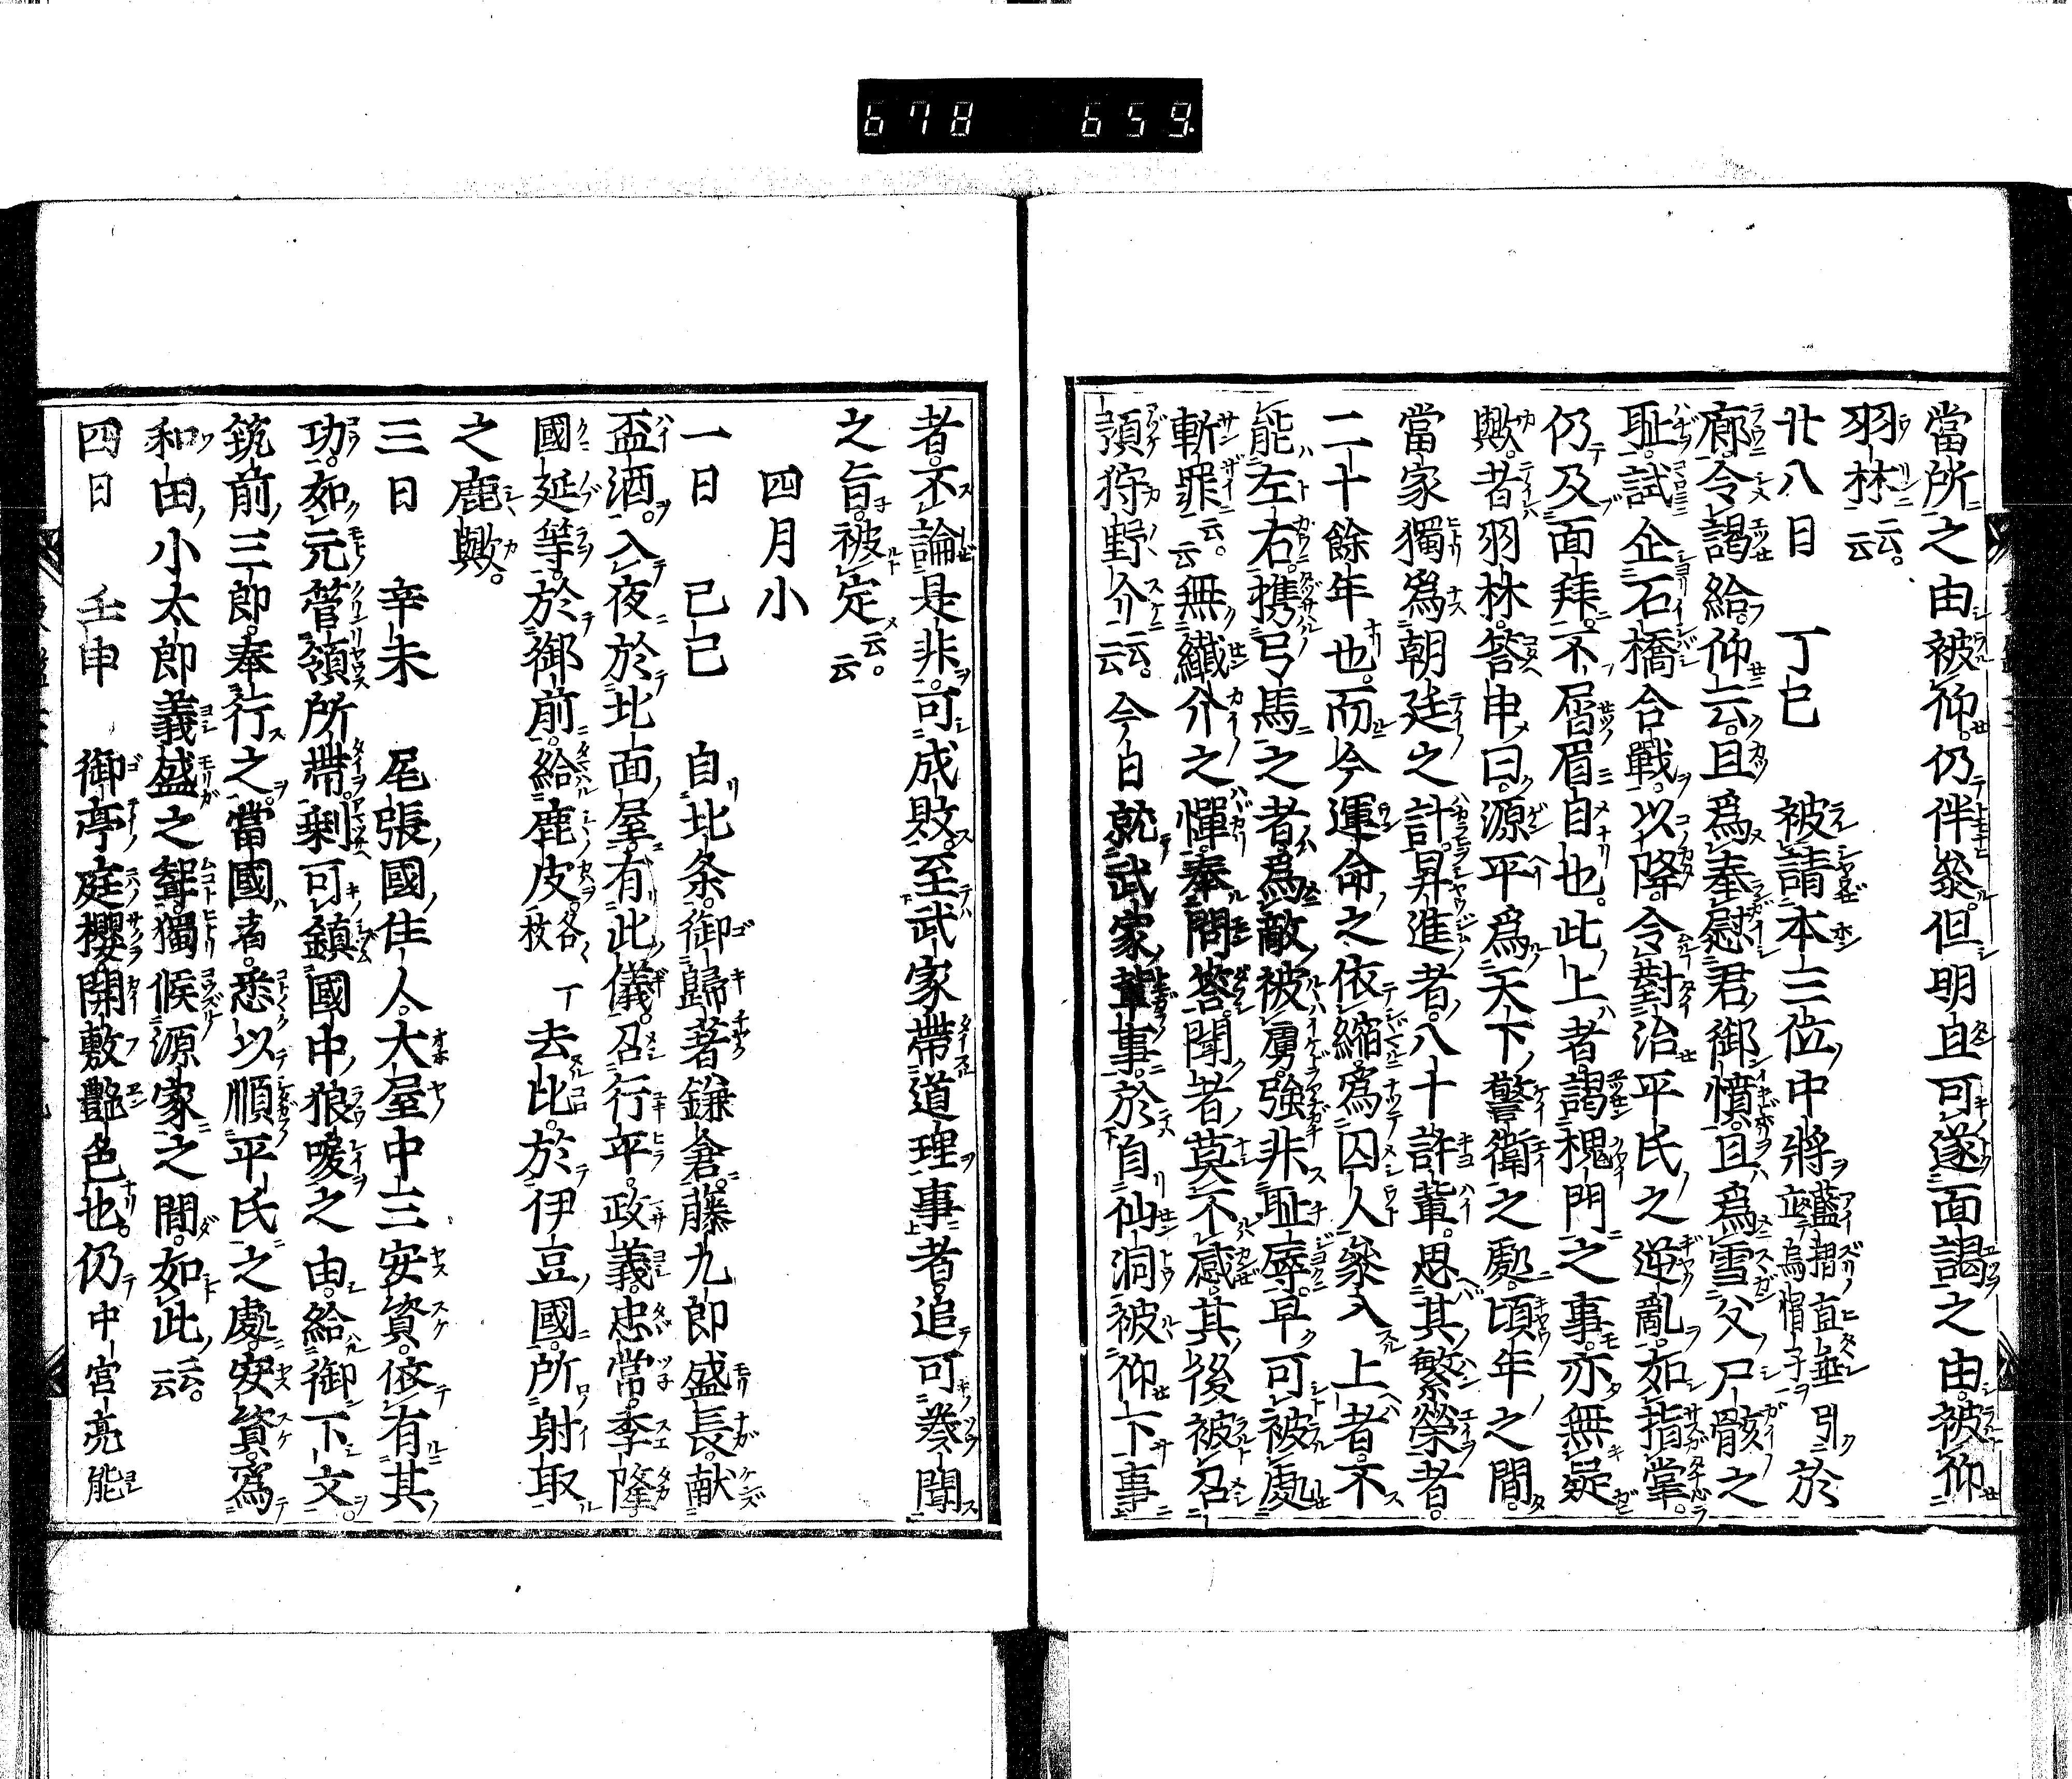 678 659.
當所之由被仰。仍伴參。但明旦可遂面謁之由。被仰
羽林云云。
廿八日 丁巳 被請本三位中將藍摺直垂立烏帽子引於
廊。令謁給。仰云。且爲奉慰君御憤。且爲雪父尸骸之
耻。試企石橋合戰。以降。令對治平氏之逆亂。如指掌。
仍及面拜。不屑眉目也。此上者。謁槐門之事。亦無疑
歟。者羽林。答申曰。源平爲天下警衛之處。頃年之間。
當家獨爲朝廷之計。昇進者。八十許輩。思其繁榮者。
二十餘年也。而今運命之依縮。爲囚人參入上者。不
能左右。携弓馬之者。爲敵被虜。強非耻辱。早可被處
斬罪云云。無纎介之憚。奉問答。聞者。莫不感。其後被召
預狩野介云云。今日就武家輩事。於自仙洞被仰下事
者。不論是非。可成敗。至武家帶道理事者。追可奏聞
之旨。被定云云。
四月小
一日 己巳 自北条。御歸著鎌倉。藤九郎盛長。献
盃酒。入夜於北面屋。有此儀。召行平。政義。忠常。季隆。
國延等。於御前。給鹿皮。各一枚 去比。於伊豆國。所射取
之鹿歟。
三日 辛未 尾張國住人。大屋中三安資。依有其
功。如元管領所帶。剩可鎮國中狼唳之由。給御下文。
筑前三郎。奉行之。當國者。悉以順平氏之處。安資爲
和田小太郎義盛之聟。獨候源家之間。如此云云。
四日 壬申 御亭庭櫻。開敷艶色也。仍中宮亮能